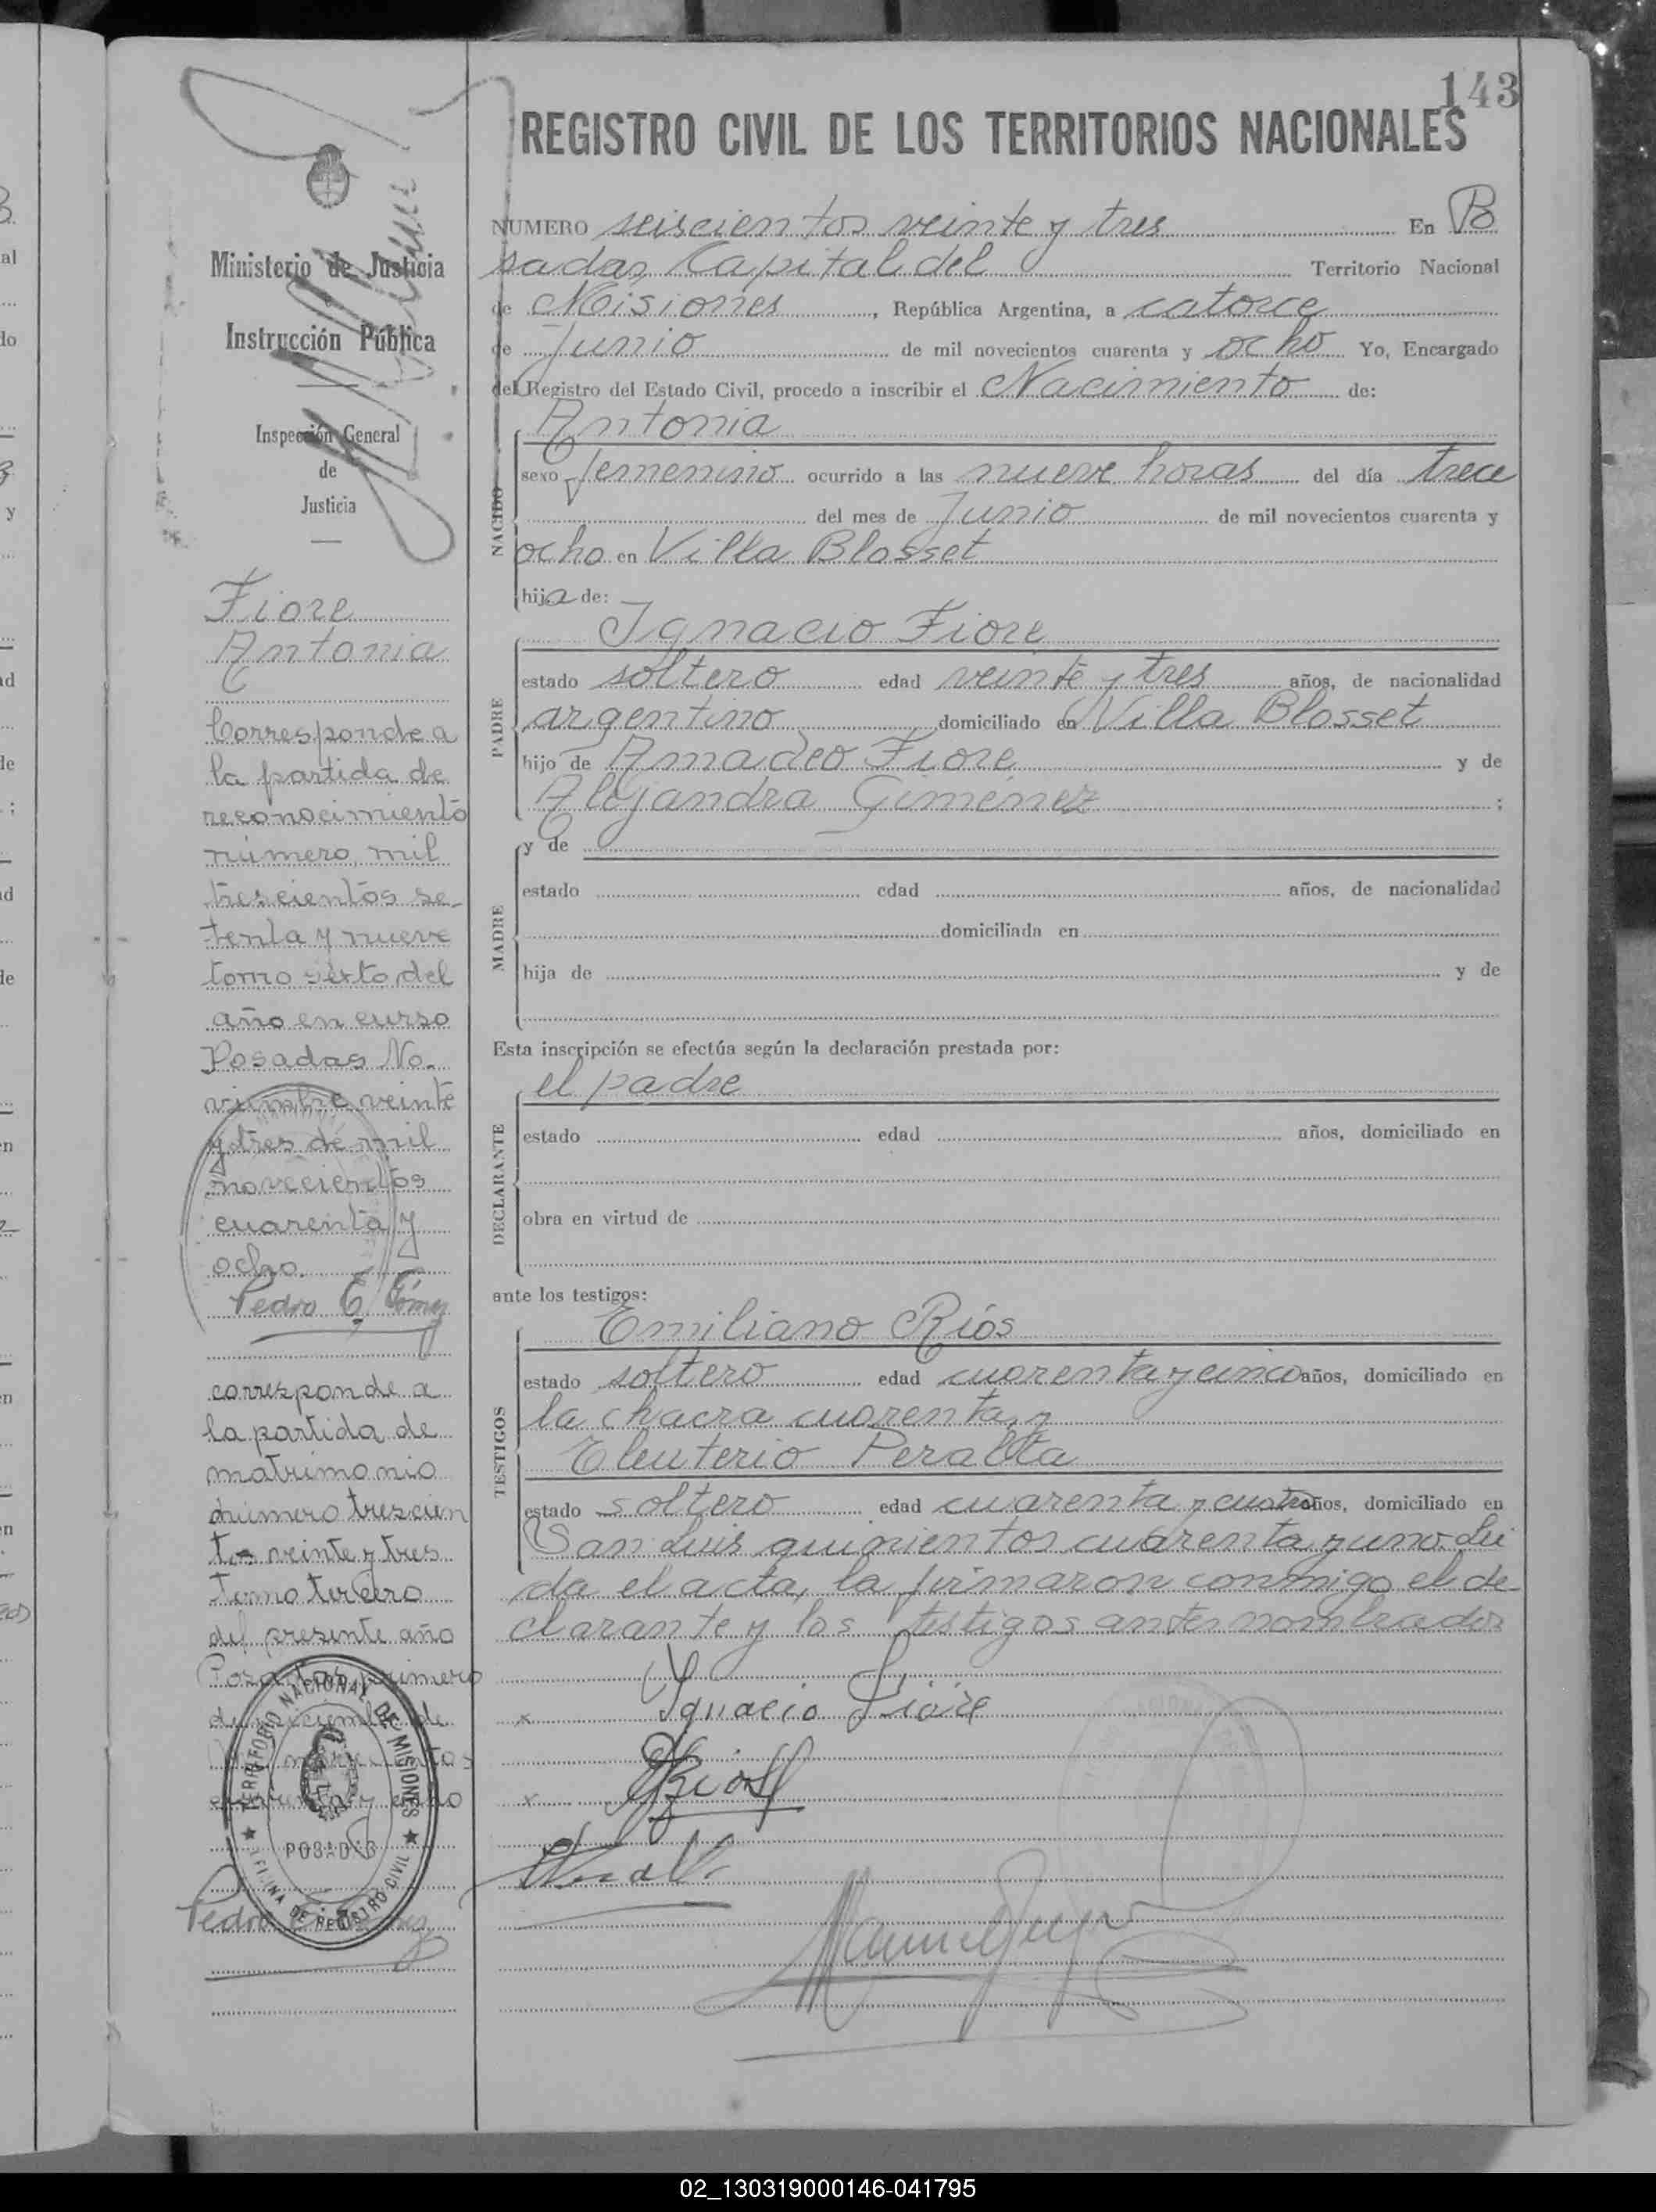 143
REGISTRO CIVIL DE LOS TERRITORIOS NACIONALES
Ministerio de Justicia
e
Instrucción Pública
Inspección General
de
Justicia
Fiore
Antonia
Corresponde a
la partida de
reconocimiento
número mil
trescientos se-
tenta y nueve
tomo sexto del
año en curso
Posadas No-
viembre veinte
y tres de mil
novecientos
cuarenta y
ocho.
Pedro E. Gómez
corresponde a
la partida de
matrimonio
número trescien
tos veinte y tres
Tomo tercero
del presente año
Posadas primero
de diciembre de
mil novecientos
cuarenta y ocho
Pedro E. Gómez
TERRITORIO NACIONAL DE MISIONES
POSADAS
OFICINA DE REGISTRO CIVIL
NUMERO seiscientos veinte y tres En Po
sadas Capital del Territorio Nacional
de Misiones, República Argentina, a catorce
de Junio de mil novecientos cuarenta y ocho Yo, Encargado
del Registro del Estado Civil, procedo a inscribir el Nacimiento de:
NACIDO
Antonia
sexo femenino ocurrido a las nueve horas del día trece
del mes de Junio de mil novecientos cuarenta y
ocho en Villa Blosset
hija de:
PADRE
Ignacio Fiore
estado soltero edad veinte y tres años, de nacionalidad
argentino domiciliado en Villa Blosset
hijo de Amadeo Fiore y de
Alejandra Gimenez ;
MADRE
y de
estado edad años, de nacionalidad
domiciliada en
hija de y de
Esta inscripción se efectúa según la declaración prestada por:
DECLARANTE
el padre
estado edad años, domiciliado en
obra en virtud de
ante los testigos:
TESTIGOS
Emiliano Ríos
estado soltero edad cuarenta y cinco años, domiciliado en
la chacra cuarenta, y
Eleuterio Peralta
estado soltero edad cuarenta y cuatro años, domiciliado en
San Luis quinientos cuarenta y uno. Leí
da el acta, la firmaron conmigo el de-
clarante y los testigos antes nombrados
x Ignacio Fiore
x ERios
02_130319000146-041795